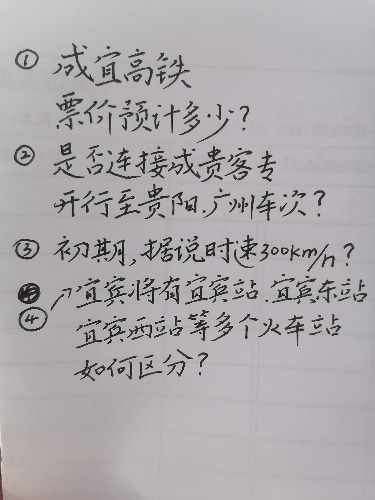 ① 成宜高铁
票价预计多少?
② 是否连接成贵客专
开行至贵阳.广州车次?
③ 初期,据说时速300km/h?
④ 宜宾将有宜宾站.宜宾东站
宜宾西站等多个火车站
如何区分?